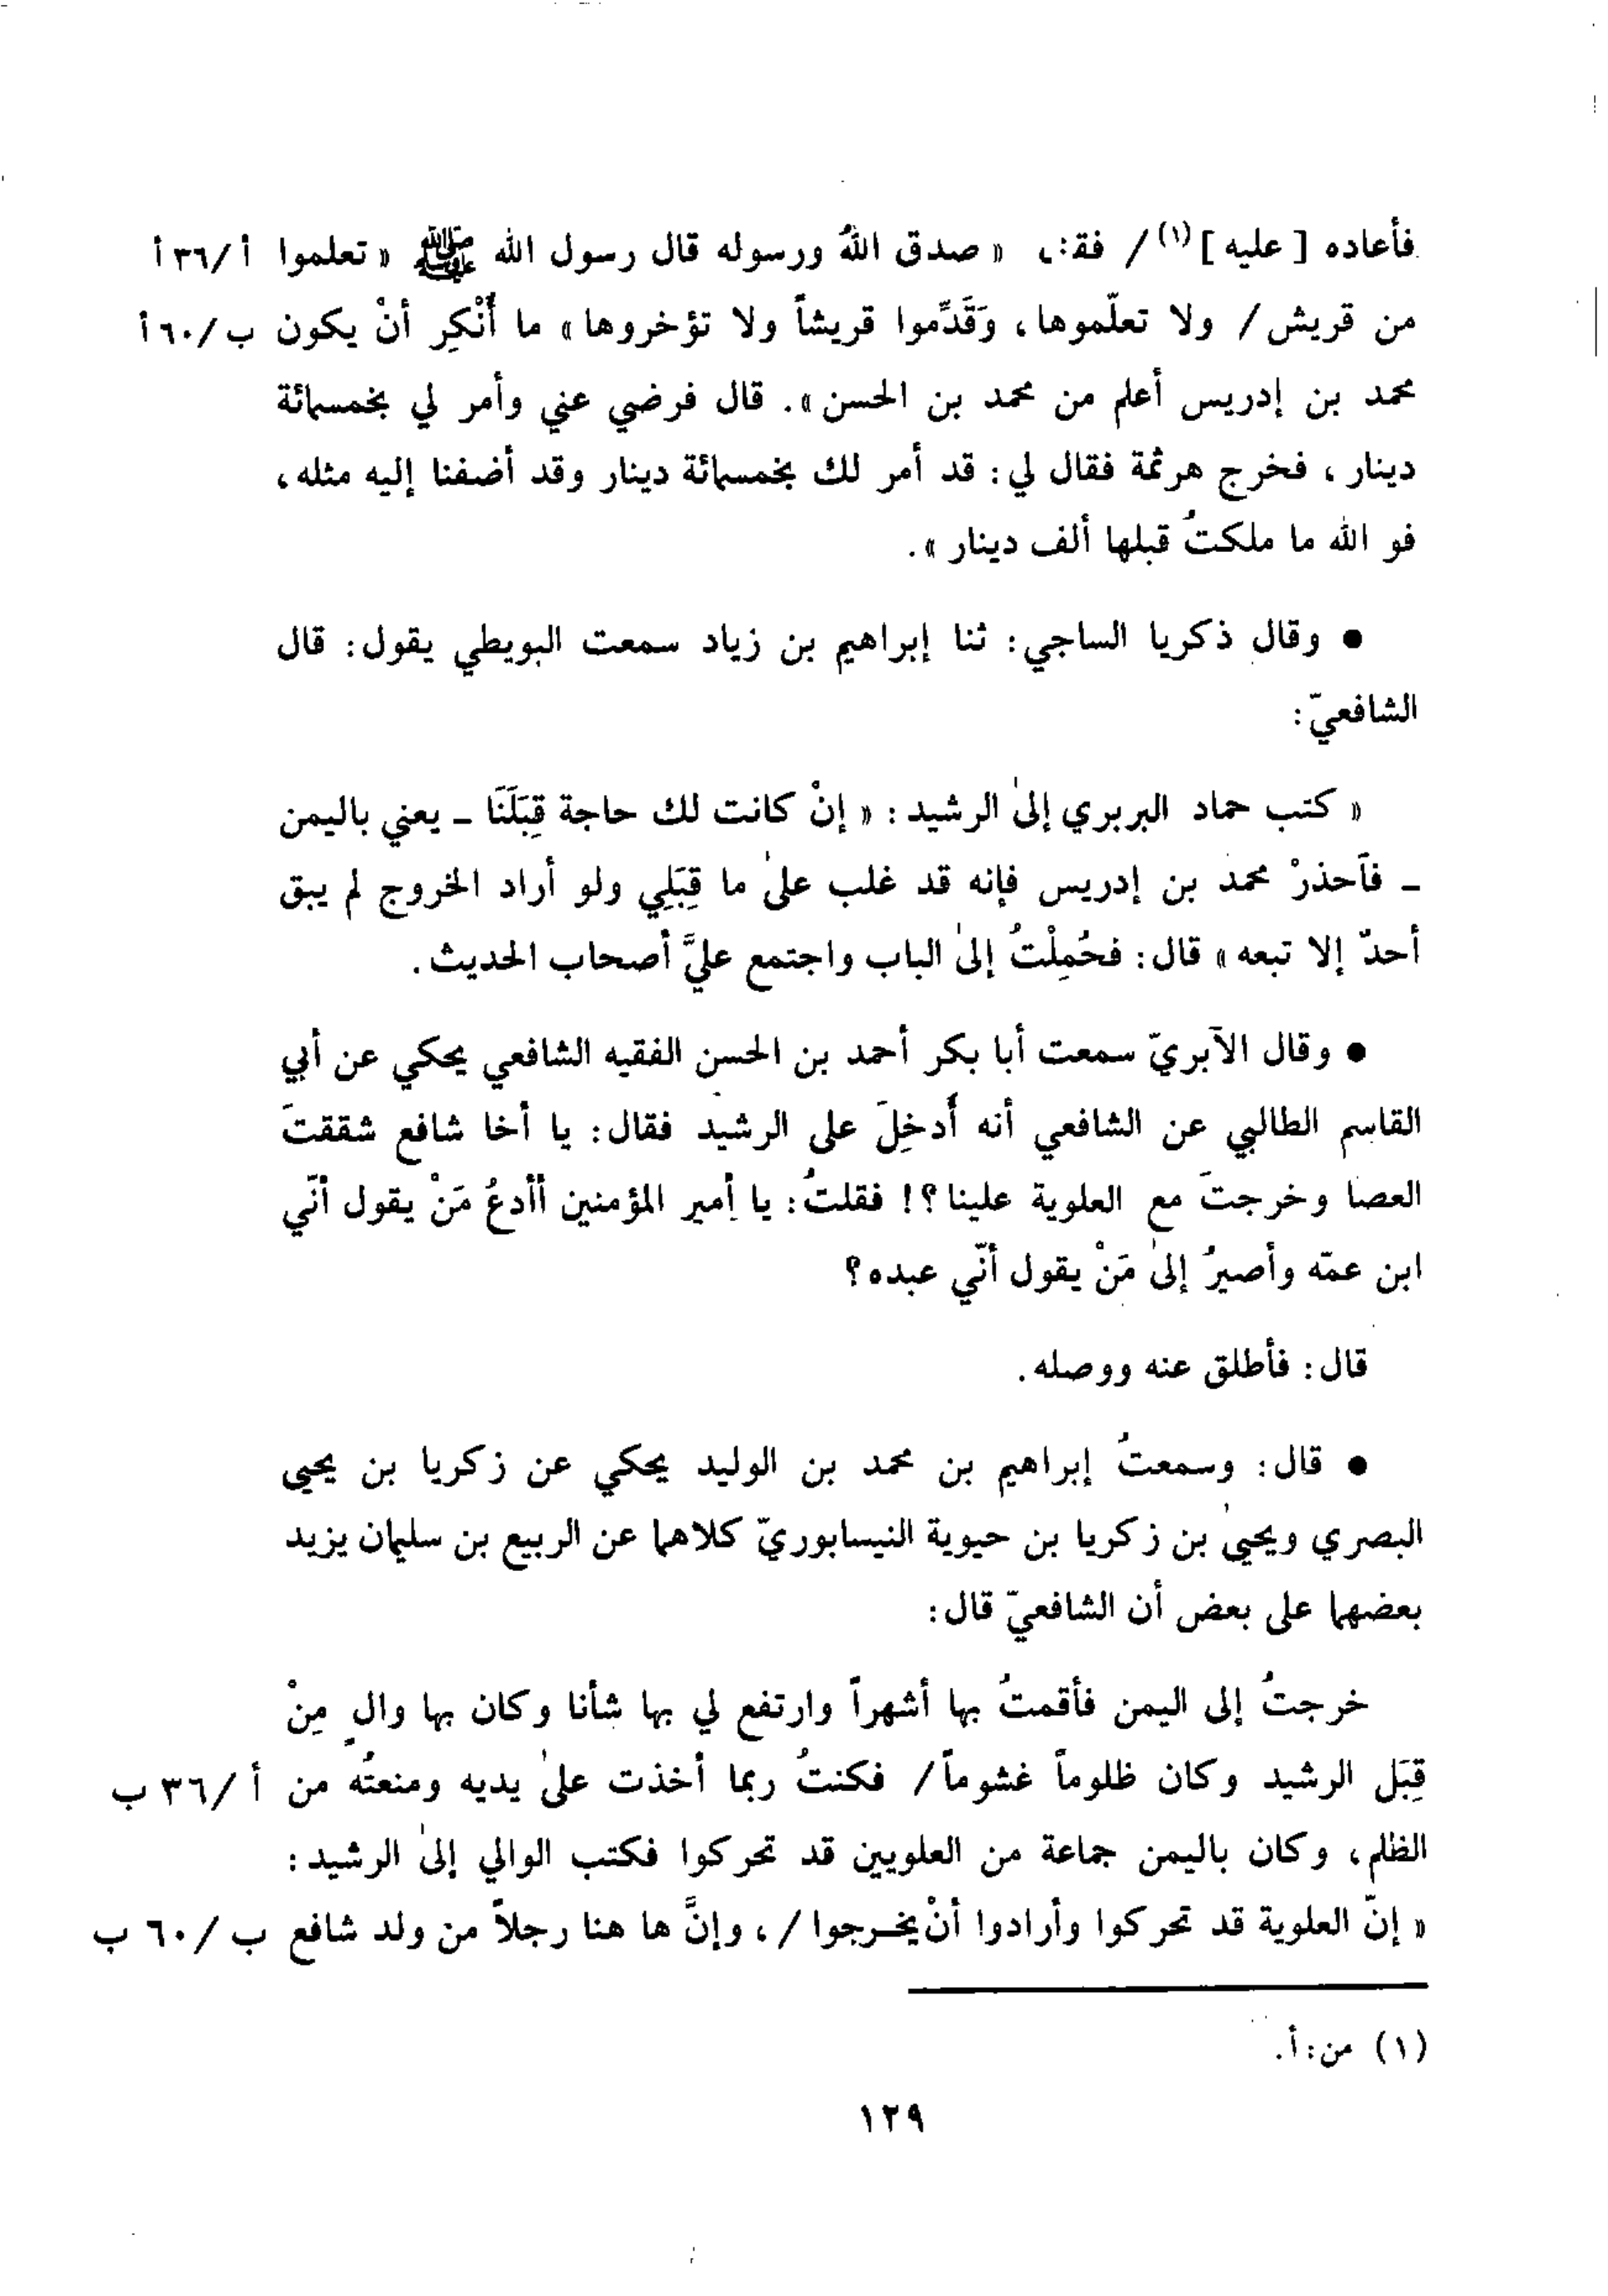 فأعاده [ عليه ](١)/ «صدق اللهُ ورسوله قال رسول الله ﷺ «تعلموا أ/٣٦أ
من قريش/ ولا تعلّموها، وَقَدِّموا قريشاً ولا تؤخروها» ما أُنْكِر أنْ يكون ب/٦٠أ
محمد بن إدريس أعلم من محمد بن الحسن». قال فرضي عني وأمر لي بخمسمائة
دينار، فخرج هرثمة فقال لي: قد أمر لك بخمسمائة دينار وقد أضفنا إليه مثله،
فو الله ما ملكتُ قبلها ألف دينار».
● وقال ذكريا الساجي: ثنا إبراهيم بن زياد سمعت البويطي يقول: قال
الشافعيّ:
«كتب حماد البربري إلىٰ الرشيد: «إنْ كانت لك حاجة قِبَلَنَا ـ يعني باليمن
ـ فآحذرْ محمد بن إدريس فإنه قد غلب علىٰ ما قِبَلِي ولو أراد الخروج لم يبق
أحدّ إلا تبعه» قال: فحُمِلْتُ إلىٰ الباب واجتمع عليَّ أصحاب الحديث.
● وقال الآبريّ سمعت أبا بكر أحمد بن الحسن الفقيه الشافعي يحكي عن أبي
القاسم الطالبي عن الشافعي أنه أُدخِلَ على الرشيد فقال: يا أخا شافع شققتَ
العصا وخرجتَ مع العلوية علينا؟! فقلتُ: يا أمير المؤمنين أأدعُ مَنْ يقول أنّي
ابن عمّه وأصيرُ إلىٰ مَنْ يقول أنّي عبده؟
قال: فأطلق عنه ووصله.
● قال: وسمعتُ إبراهيم بن محمد بن الوليد يحكي عن زكريا بن يحيى
البصري ويحيىٰ بن زكريا بن حيوية النيسابوريّ كلاهما عن الربيع بن سليمان يزيد
بعضهما على بعض أن الشافعيّ قال:
خرجتُ إلى اليمن فأقمتُ بها أشهراً وارتفع لي بها شأنا وكان بها والٍ مِنْ
قِبَل الرشيد وكان ظلوماً غشوماً/ فكنتُ ربما أخذت علىٰ يديه ومنعتُه من أ/٣٦ب
الظلم، وكان باليمن جماعة من العلويين قد تحركوا فكتب الوالي إلىٰ الرشيد:
«إنّ العلوية قد تحركوا وأرادوا أنْ يخرجوا/، وإنَّ ها هنا رجلاً من ولد شافع ب/٦٠ب
(١) من: أ.
١٢٩